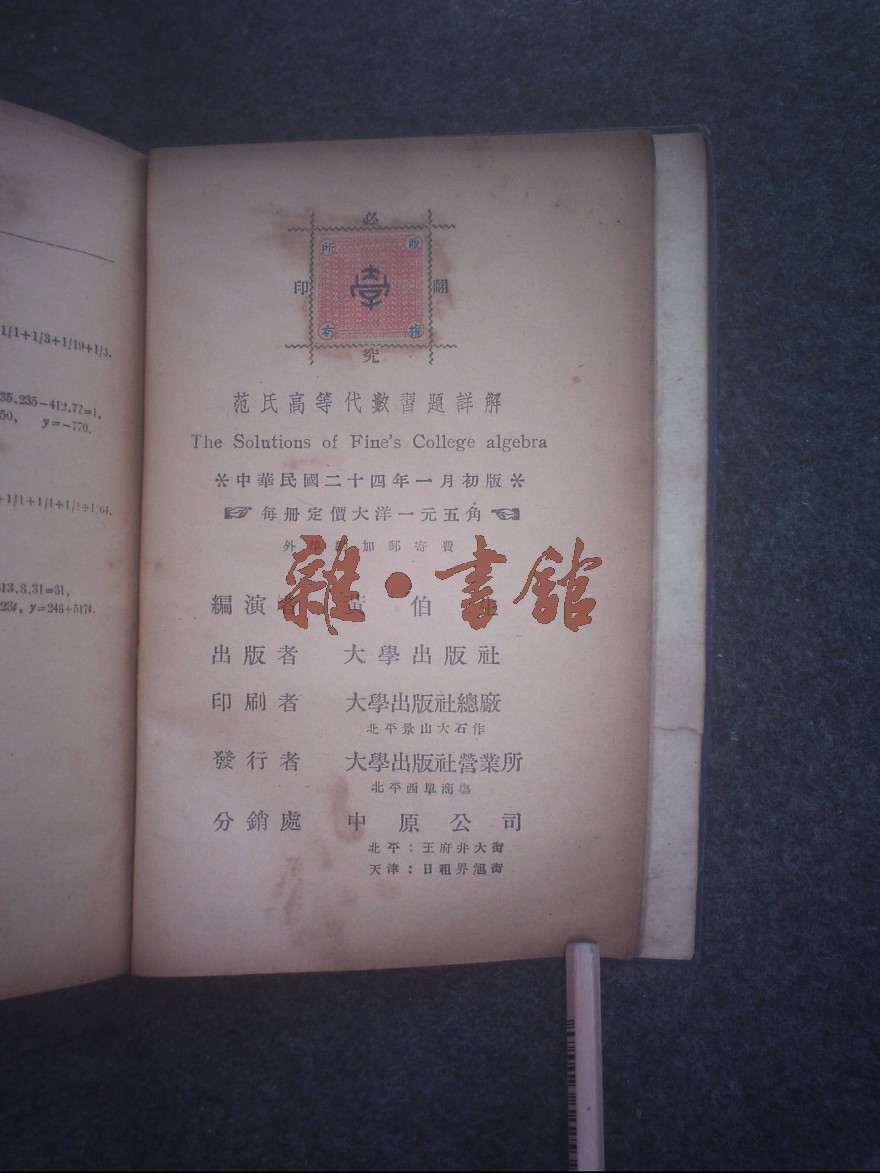 1/1+1/3+1/19+1/3.
35.235-412.77=1,
50, y=-770.
+1/1+1/1+1/1+1/64.
313.8.31=31,
234, y=248+517t.
必
所 版
印 翻
有 權
究
范氏高等代數習題詳解
The Solutions of Fine's College algebra
＊中華民國二十四年一月初版＊
每册定價大洋一元五角
外埠附加郵寄費
雜·書館
編演者 黃伯
出版者 大學出版社
印刷者 大學出版社總廠
北平景山大石作
發行者 大學出版社營業所
北平西單商場
分銷處 中原公司
北平：王府井大街
天津：日租界旭街